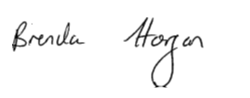 Brenda Horgan